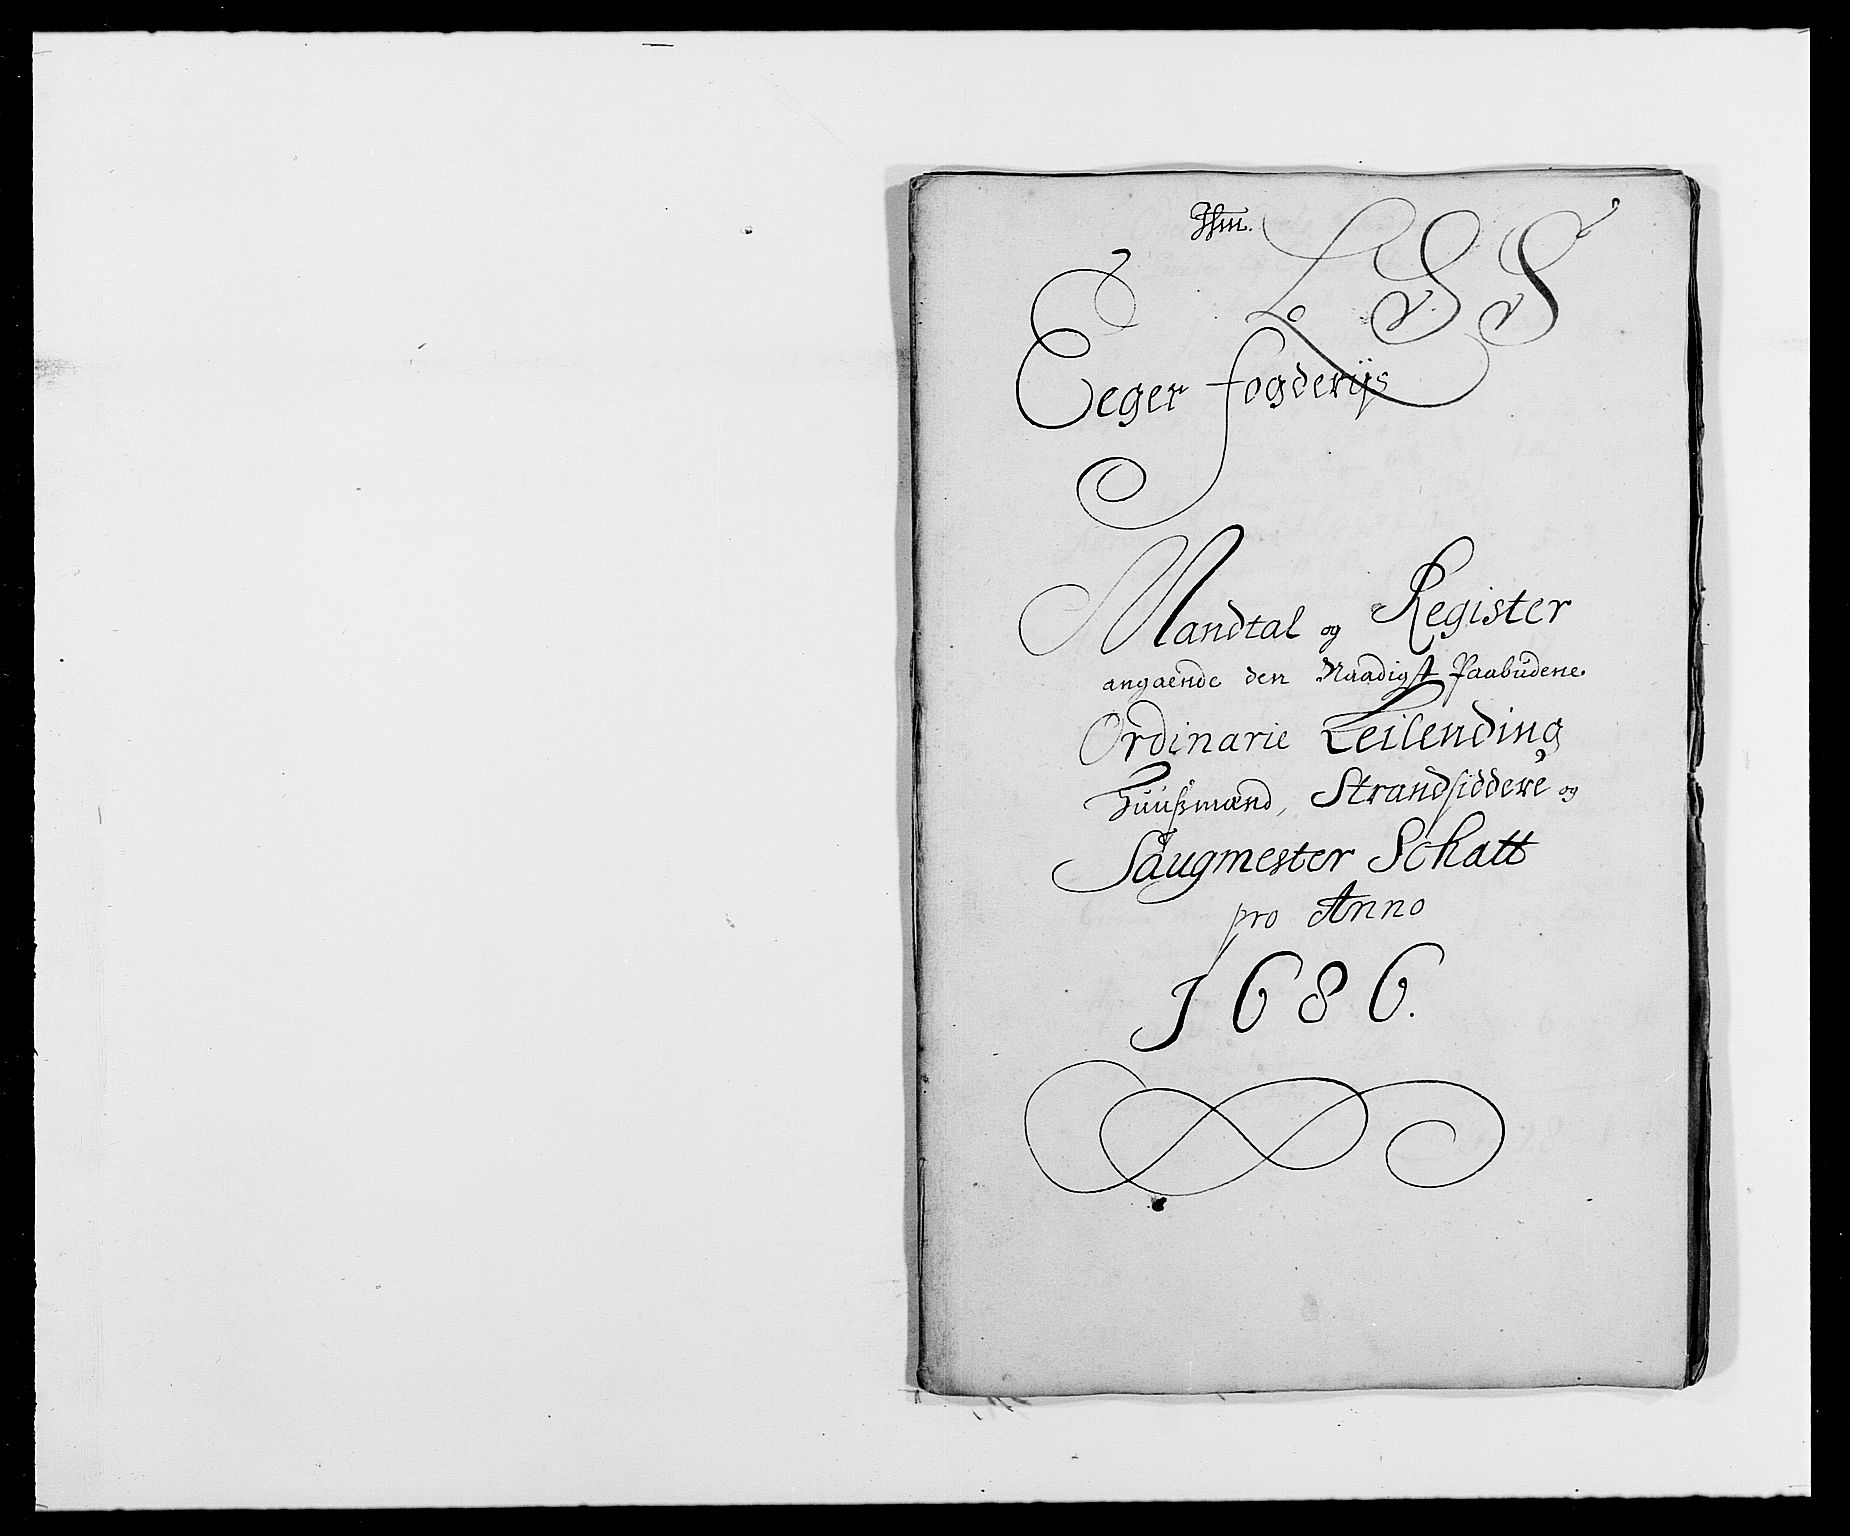 L S S
Eeger fogderijs
Mandtal og Register
angaende den Naadigst Paabudene
Ordinarie Leilending
Huuszmænd, Strandsiddere og
Saugmester Schatt
pro Anno
1686.